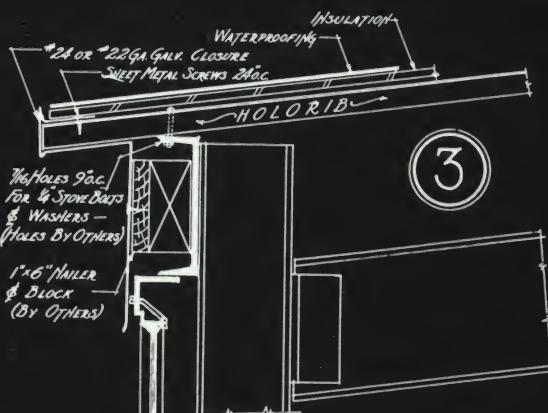 INSULATION
WATERPROOFING
#24 OR #22 GA. GALV. CLOSURE
SHEET METAL SCREWS 24" O.C.
HOLORIB
3
7/16 HOLES 9" O.C.
FOR 1/4" STOVE BOLTS
& WASHERS —
(HOLES BY OTHERS)
1"x6" NAILER
& BLOCK
(BY OTHERS)